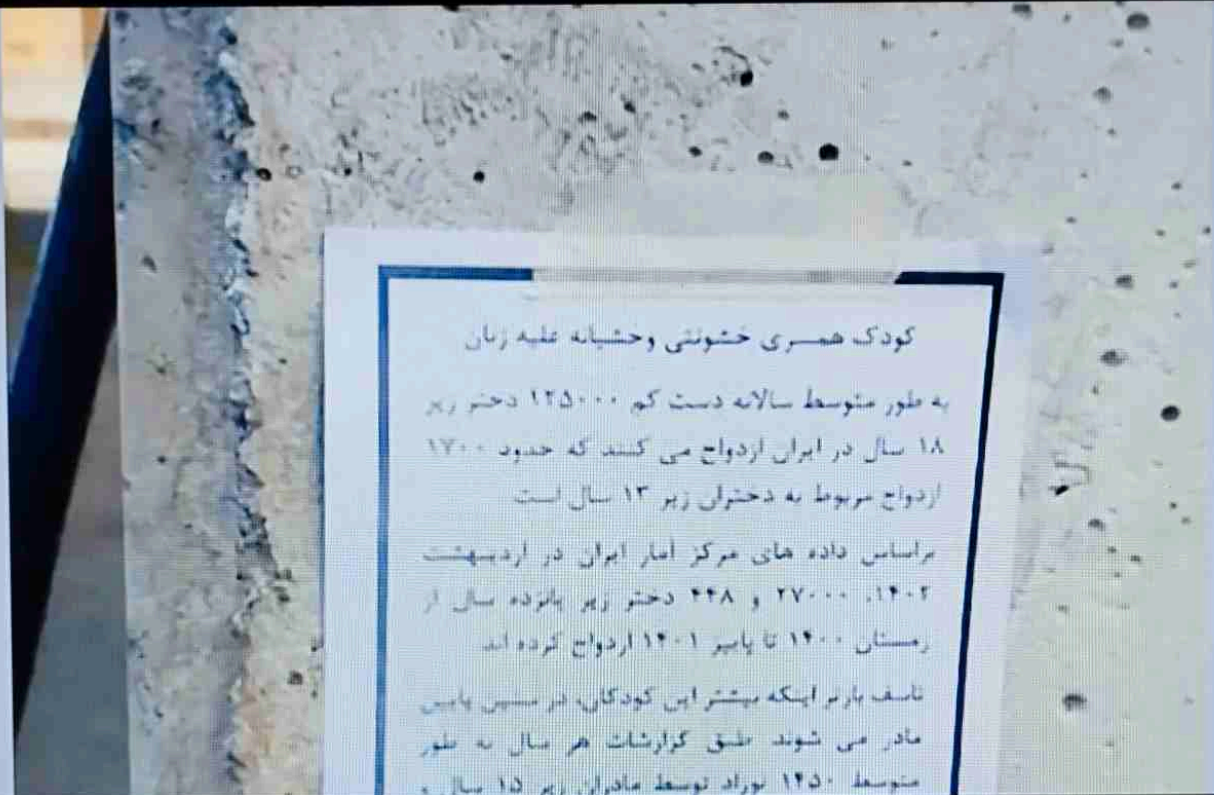 کودک همسری خشونتی وحشیانه علیه زنان
به طور متوسط سالانه دست کم ۱۲۵۰۰۰ دختر زیر
۱۸ سال در ایران ازدواج می کنند که حدود ۱۷۰۰
ازدواج مربوط به دختران زیر ۱۳ سال است
براساس داده های مرکز آمار ایران در اردیبهشت
۱۴۰۲، ۲۷۰۰۰ و ۴۴۸ دختر زیر پانزده سال از
زمستان ۱۴۰۰ تا پاییز ۱۴۰۱ ازدواج کرده اند
تاسف بارتر اینکه بیشتر این کودکان، در سنین پایین
مادر می شوند طبق گزارشات هر سال به طور
متوسط ۱۴۵۰ نوزاد توسط مادران زیر ۱۵ سال و